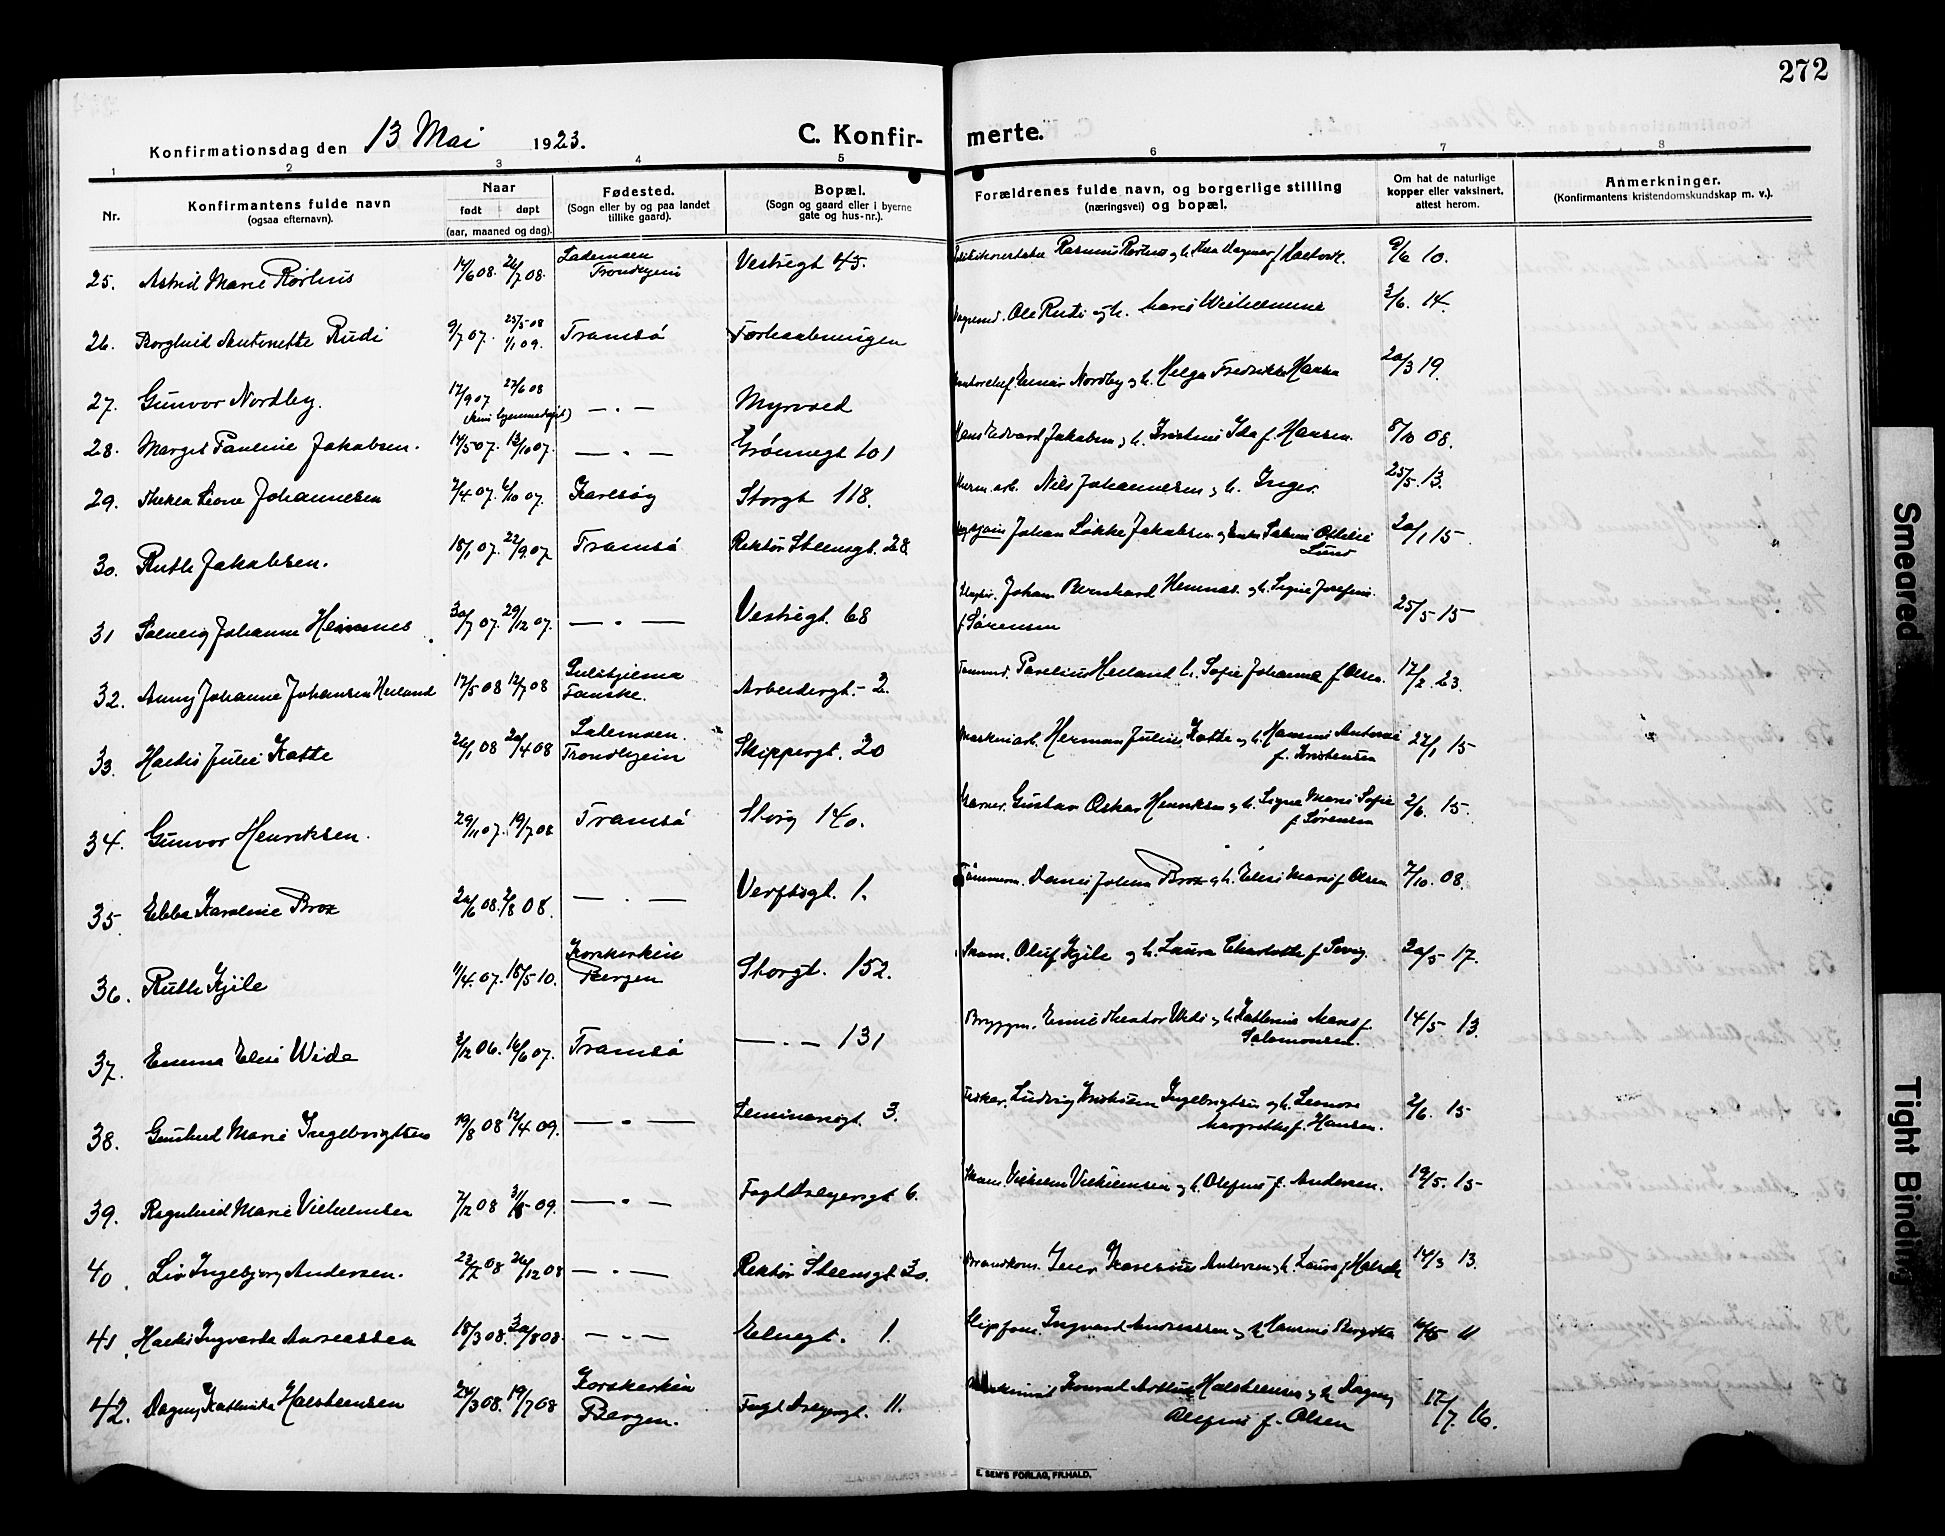 272
Konfirmationsdag den 13 Mai 1923. C. Konfir- merte.
1 2 3 4 5 6 7 8
Nr.
Konfirmantens fulde navn
(ogsaa efternavn).
Naar
født døpt
(aar, maaned og dag).
Fødested.
(Sogn eller by og paa landet
tillike gaard).
Bopæl.
(Sogn og gaard eller i byerne
gate og hus-nr.).
Forældrenes fulde navn, og borgerlige stilling
(næringsvei) og bopæl.
Om hat de naturlige
kopper eller vaksinert,
attest herom.
Anmerkninger.
(Konfirmantens kristendomskundskap m. v.).
25. Astrid Marie Rørhus 14/6 08. 26/7 08. Lademoen Trondhjem Vestregt 45. Rasmus Rørhus og h. Thea Dagmar f. 9/6 10.
26. Borghild Antonette Rudi 9/7 07. 25/5 08 1/1 09. Tromsø Forhaabningen Ole Rudi og h. Marie Wilhelmine 3/6. 14.
27. Gunvor Nordby. 17/9 07 27/6 08 (hjemmedøpt) — . — Myrvold Einar Nordby og h. Helga Fredrikke Hansen 20/3 19.
28. Margit Pauline Jakobsen. 14/5 07. 13/10 07. — . — Grønnegt 101 Hans Edvard Jakobsen og h. Kristine Ida f. Hansen. 8/10 08.
29. Thekea Leone Johannesen 7/4 07. 6/10 07. Karlsøy Storgt 118. Nils Johannesen og h. Inger. 25/5. 13.
30. Ruth Jakobsen. 18/1 07. 22/9 07 Tromsø Rektor Steensgt. 28. Johan Løkke Jakobsen og Ottelie Lund 20/1 15
31 Solveig Johanne Hemnes 30/7 07. 29/12 07. — . — Vestregt. 68 Johan Bernhard Hemnes og h. Signe Josefine f. Sørensen 25/5 15
32. Anny Johanne Johansen Heiland 17/5 08 12/7 08 Fauske. Arbeidergt. - 2. Parelius Heiland h. Sofie Johanna f. Olsen. 17/2. 23.
33. Hardis Julie Katte 26/1 08 20/4 08 Lademoen. Trondhjem Skippergt. 20 Maskinarb. Herman Julius Katte og h. Hanna Antonie f. Kristensen 22/1 15
34. Gunvor Henriksen. 29/11 07. 19/7 08. Tromsø Storg 140. Gustav Oskar Henriksen og h. Signe Marie Sofie f. Sørensen 2/6. 15.
35. Ebba Karoline Brox 20/6 08. 2/8 08. — . — Verftsgt. 1. Tømmerm. Daniel Johan Brox og h. Elise Marie f. Olsen 7/10. 08.
36. Ruth Kjile 11/4. 07. 18/5 10. Korskirken Bergen Storgt. 152. Skom. Oluf Kjile og h. Laura Charlotte f. 30/5 17.
37. Emma Elise Wide 3/12 06. 16/6 07. Tromsø — . — 131 Bryggm. Emil Theodor Wide og h. Kathrine Marie f. Salomonsen. 14/5 13.
38. Gunhild Marie Ingebrigtsen 19/8 08 12/4 09. — . — Seminarigt. 3. Fisker. Ludvig Kristian Ingebrigtsen og h. Leonore Margrethe f. Hansen. 2/6. 15
39. Ragnhild Marie Vilhelmsen 7/12 08 — . — Fogd Dreyersgt 6. Skom. Vilhelm Vilhelmsen og h. Olefine f. Andersen. 19/5. 15
40. Liv Ingebjørg Andersen. 23/7 08 26/12 08 — . — Rektor Steensgt 30. Brandkom. Andersen og h. Laura f. 14/3 13.
41. Hardis Ingvarda Andreassen 18/3 08. 30/8 08. — . — Elvegt. 1. Ingvard Andreassen og h. Bergitta 11
42. Dagny Kathinka Halstensen 24/3 08. 19/7 08 Korskirken Bergen. Fogd Dreyergt. 11. Konrad Arthur Halstensen og h. Dagny Olefine f. Olsen 17/7. 16.
E. SEM'S FORLAG, FR.HALD.
Smeared
Tight Binding